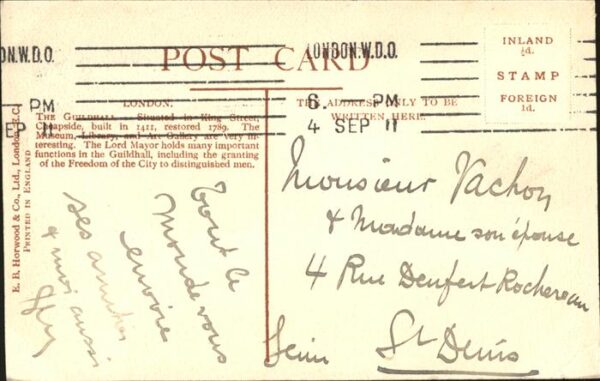 LONDON.W.D.O. LONDON.W.D.O.
POST CARD
INLAND
½d.
STAMP
FOREIGN
1d.
PM 6. PM
SEP 11 4 SEP 11
LONDON.
THE GUILDHALL. Situated in King Street,
Cheapside, built in 1411, restored 1789. The
Museum, Library, and Art Gallery are very in-
teresting. The Lord Mayor holds many important
functions in the Guildhall, including the granting
of the Freedom of the City to distinguished men.
THE ADDRESS ONLY TO BE
WRITTEN HERE.
E. B. Horwood & Co., Ltd., London, E.C.
PRINTED IN ENGLAND
Tout le
monde vous
envoie
ses amitiés
& moi aussi
Monsieur Vachon
& Madame son épouse
4 Rue Denfert Rochereau
St Denis
Seine